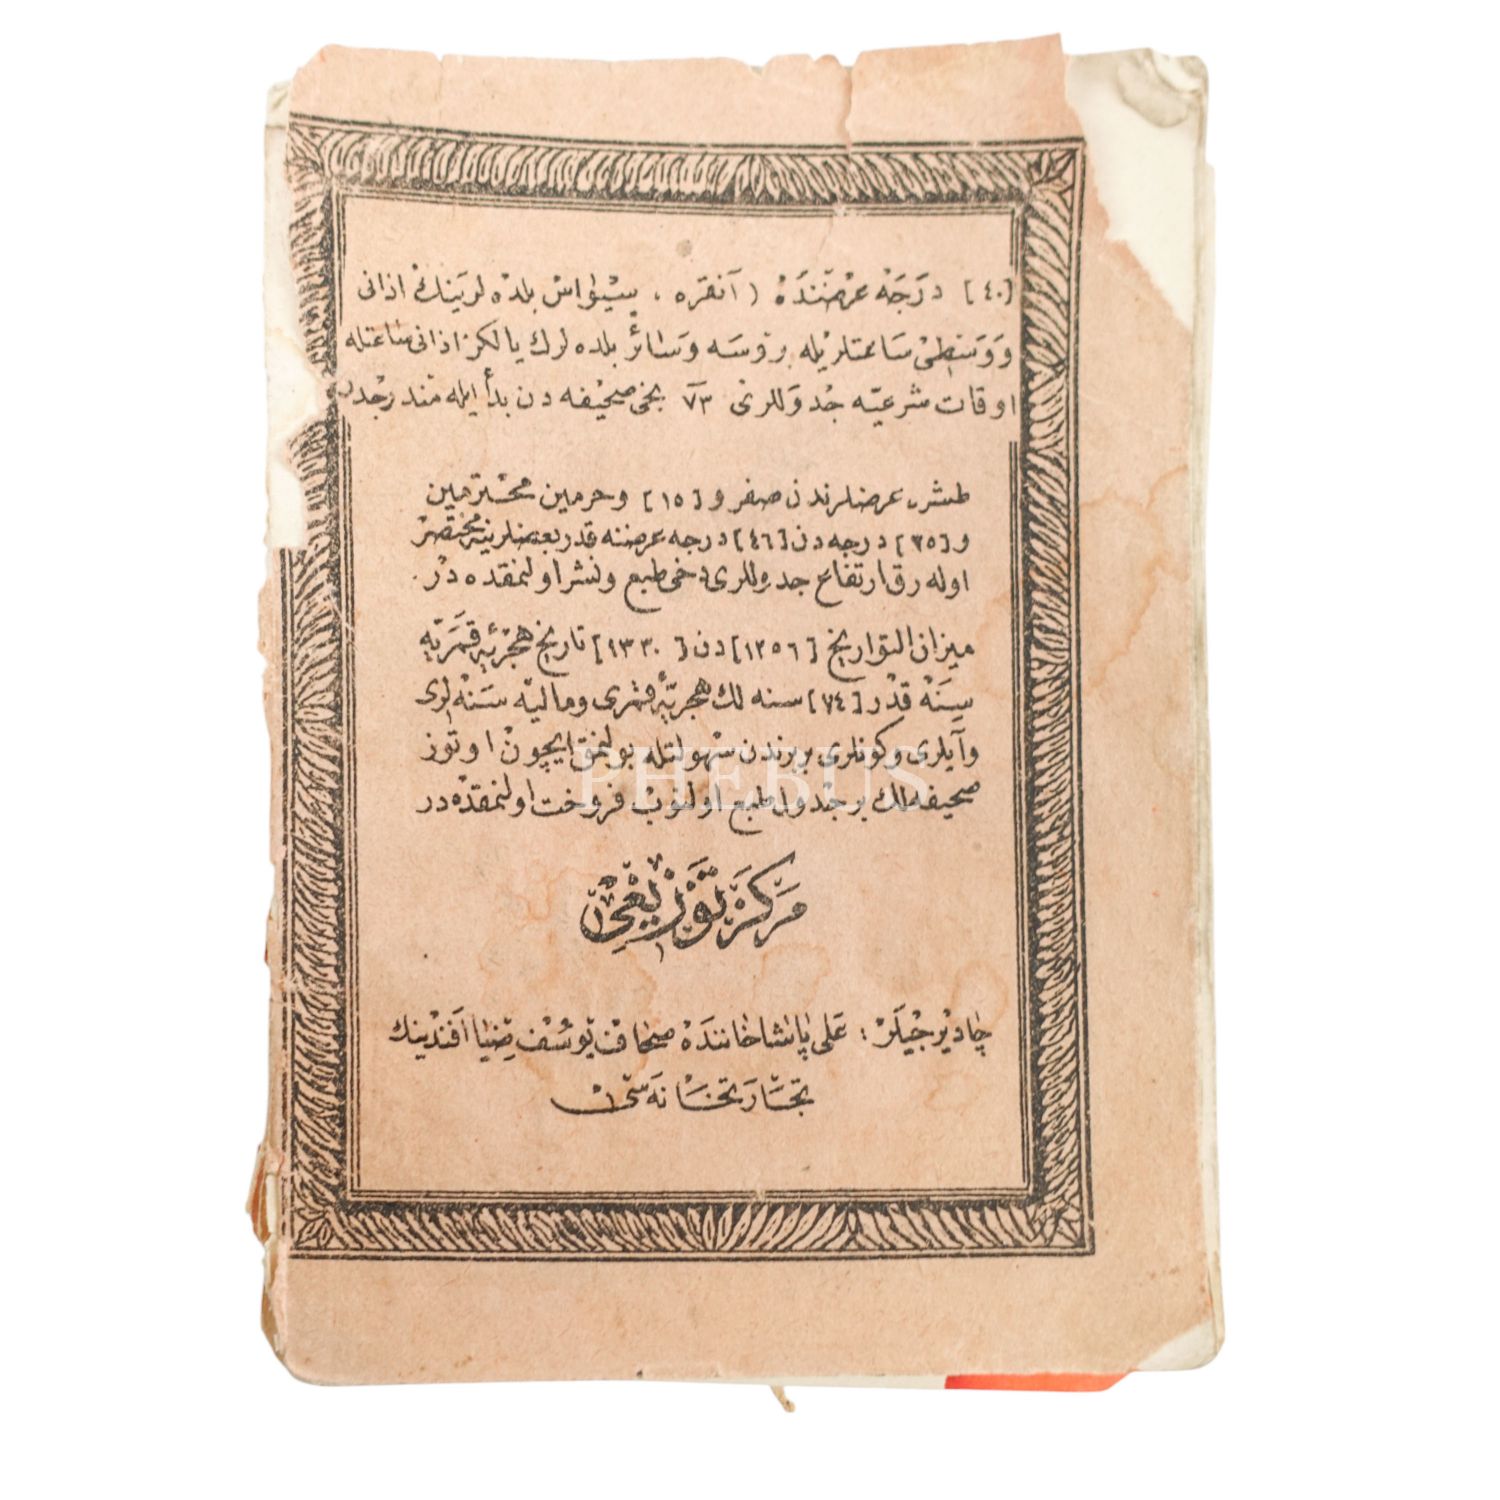 [٤٠] درجه عرضنده ( آنقره ، سیواس بلده لرینك اذانی
ووسطی ساعتلریله بروسه وسائر بلده لرك یالکز اذانی ساعتله
اوقات شرعیه جدوللری ٧٣ نجی صحیفه دن بدأ ایله مندرجدر
طشره عرضلرندن صفر و [١٥] وحرمین محترمین
و [٣٥] درجه دن [٤٦] درجه عرضنه قدر بعضلرینه مختصر
اوله رق ارتفاع جدوللری دخی طبع ونشر اولنمقده در .
میزان التواریخ [١٢٥٦] دن [١٣٣٠] تاریخ هجریهٔ قمریه
سنه قدر [٧٤] سنه لك هجریهٔ قمری ومالیه سنه لری
وآیلری وکونلری بربرندن سهولتله بولنمق ایچون اوتوز
صحیفه لك بر جدول طبع اولنوب فروخت اولنمقده در
مرکز توزیعی
چادیرجیلر : علی پاشا خاننده صحاف یوسف ضیا افندینك
تجارتخانه سی
PHEBUS